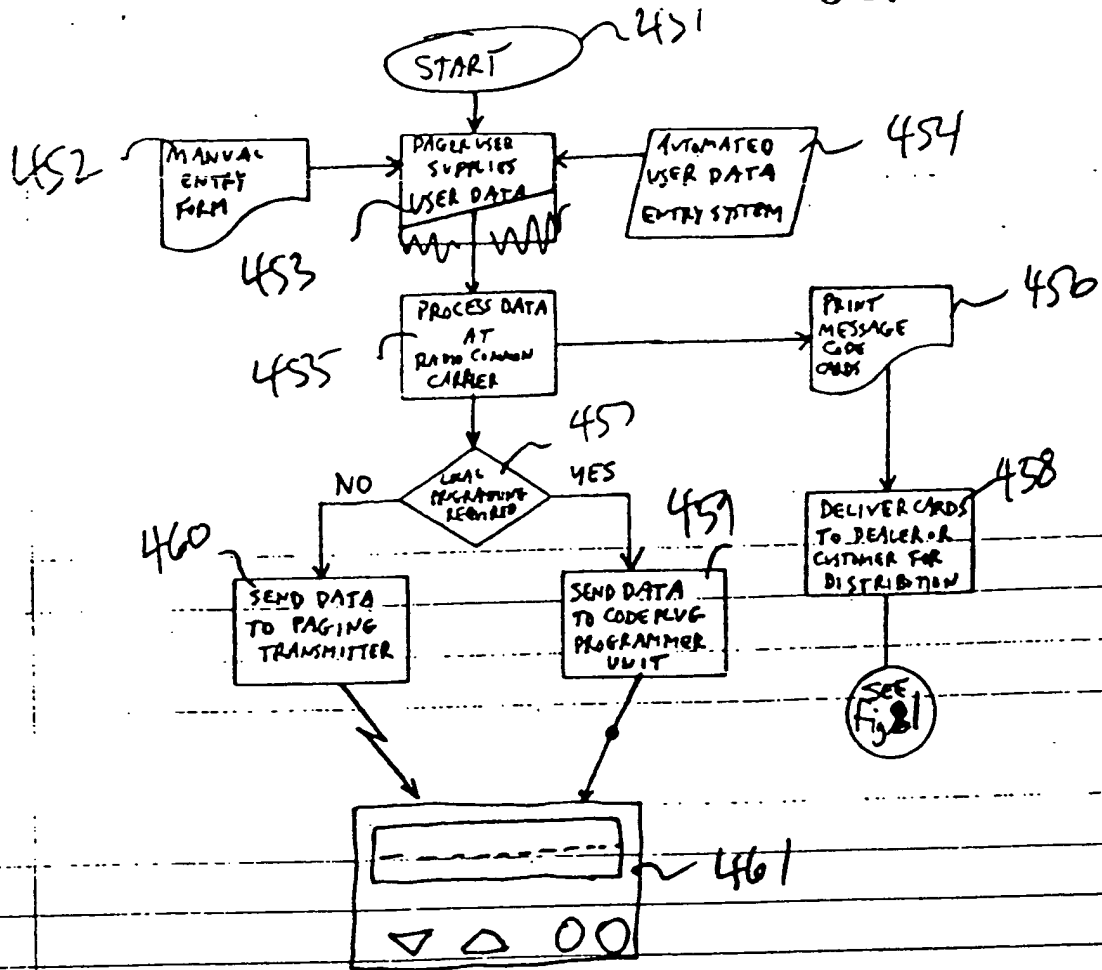 START
451
452
MANUAL
ENTRY
FORM
PAGER USER
SUPPLIES
USER DATA
453
AUTOMATED
USER DATA
ENTRY SYSTEM
454
PROCESS DATA
AT
RADIO COMMON
CARRIER
455
PRINT
MESSAGE
CODE
CARDS
456
457
NO
LOCAL
PROGRAMMING
REQUIRED
YES
460
SEND DATA
TO PAGING
TRANSMITTER
459
SEND DATA
TO CODEPLUG
PROGRAMMER
UNIT
458
DELIVER CARDS
TO DEALER OR
CUSTOMER FOR
DISTRIBUTION
SEE
461